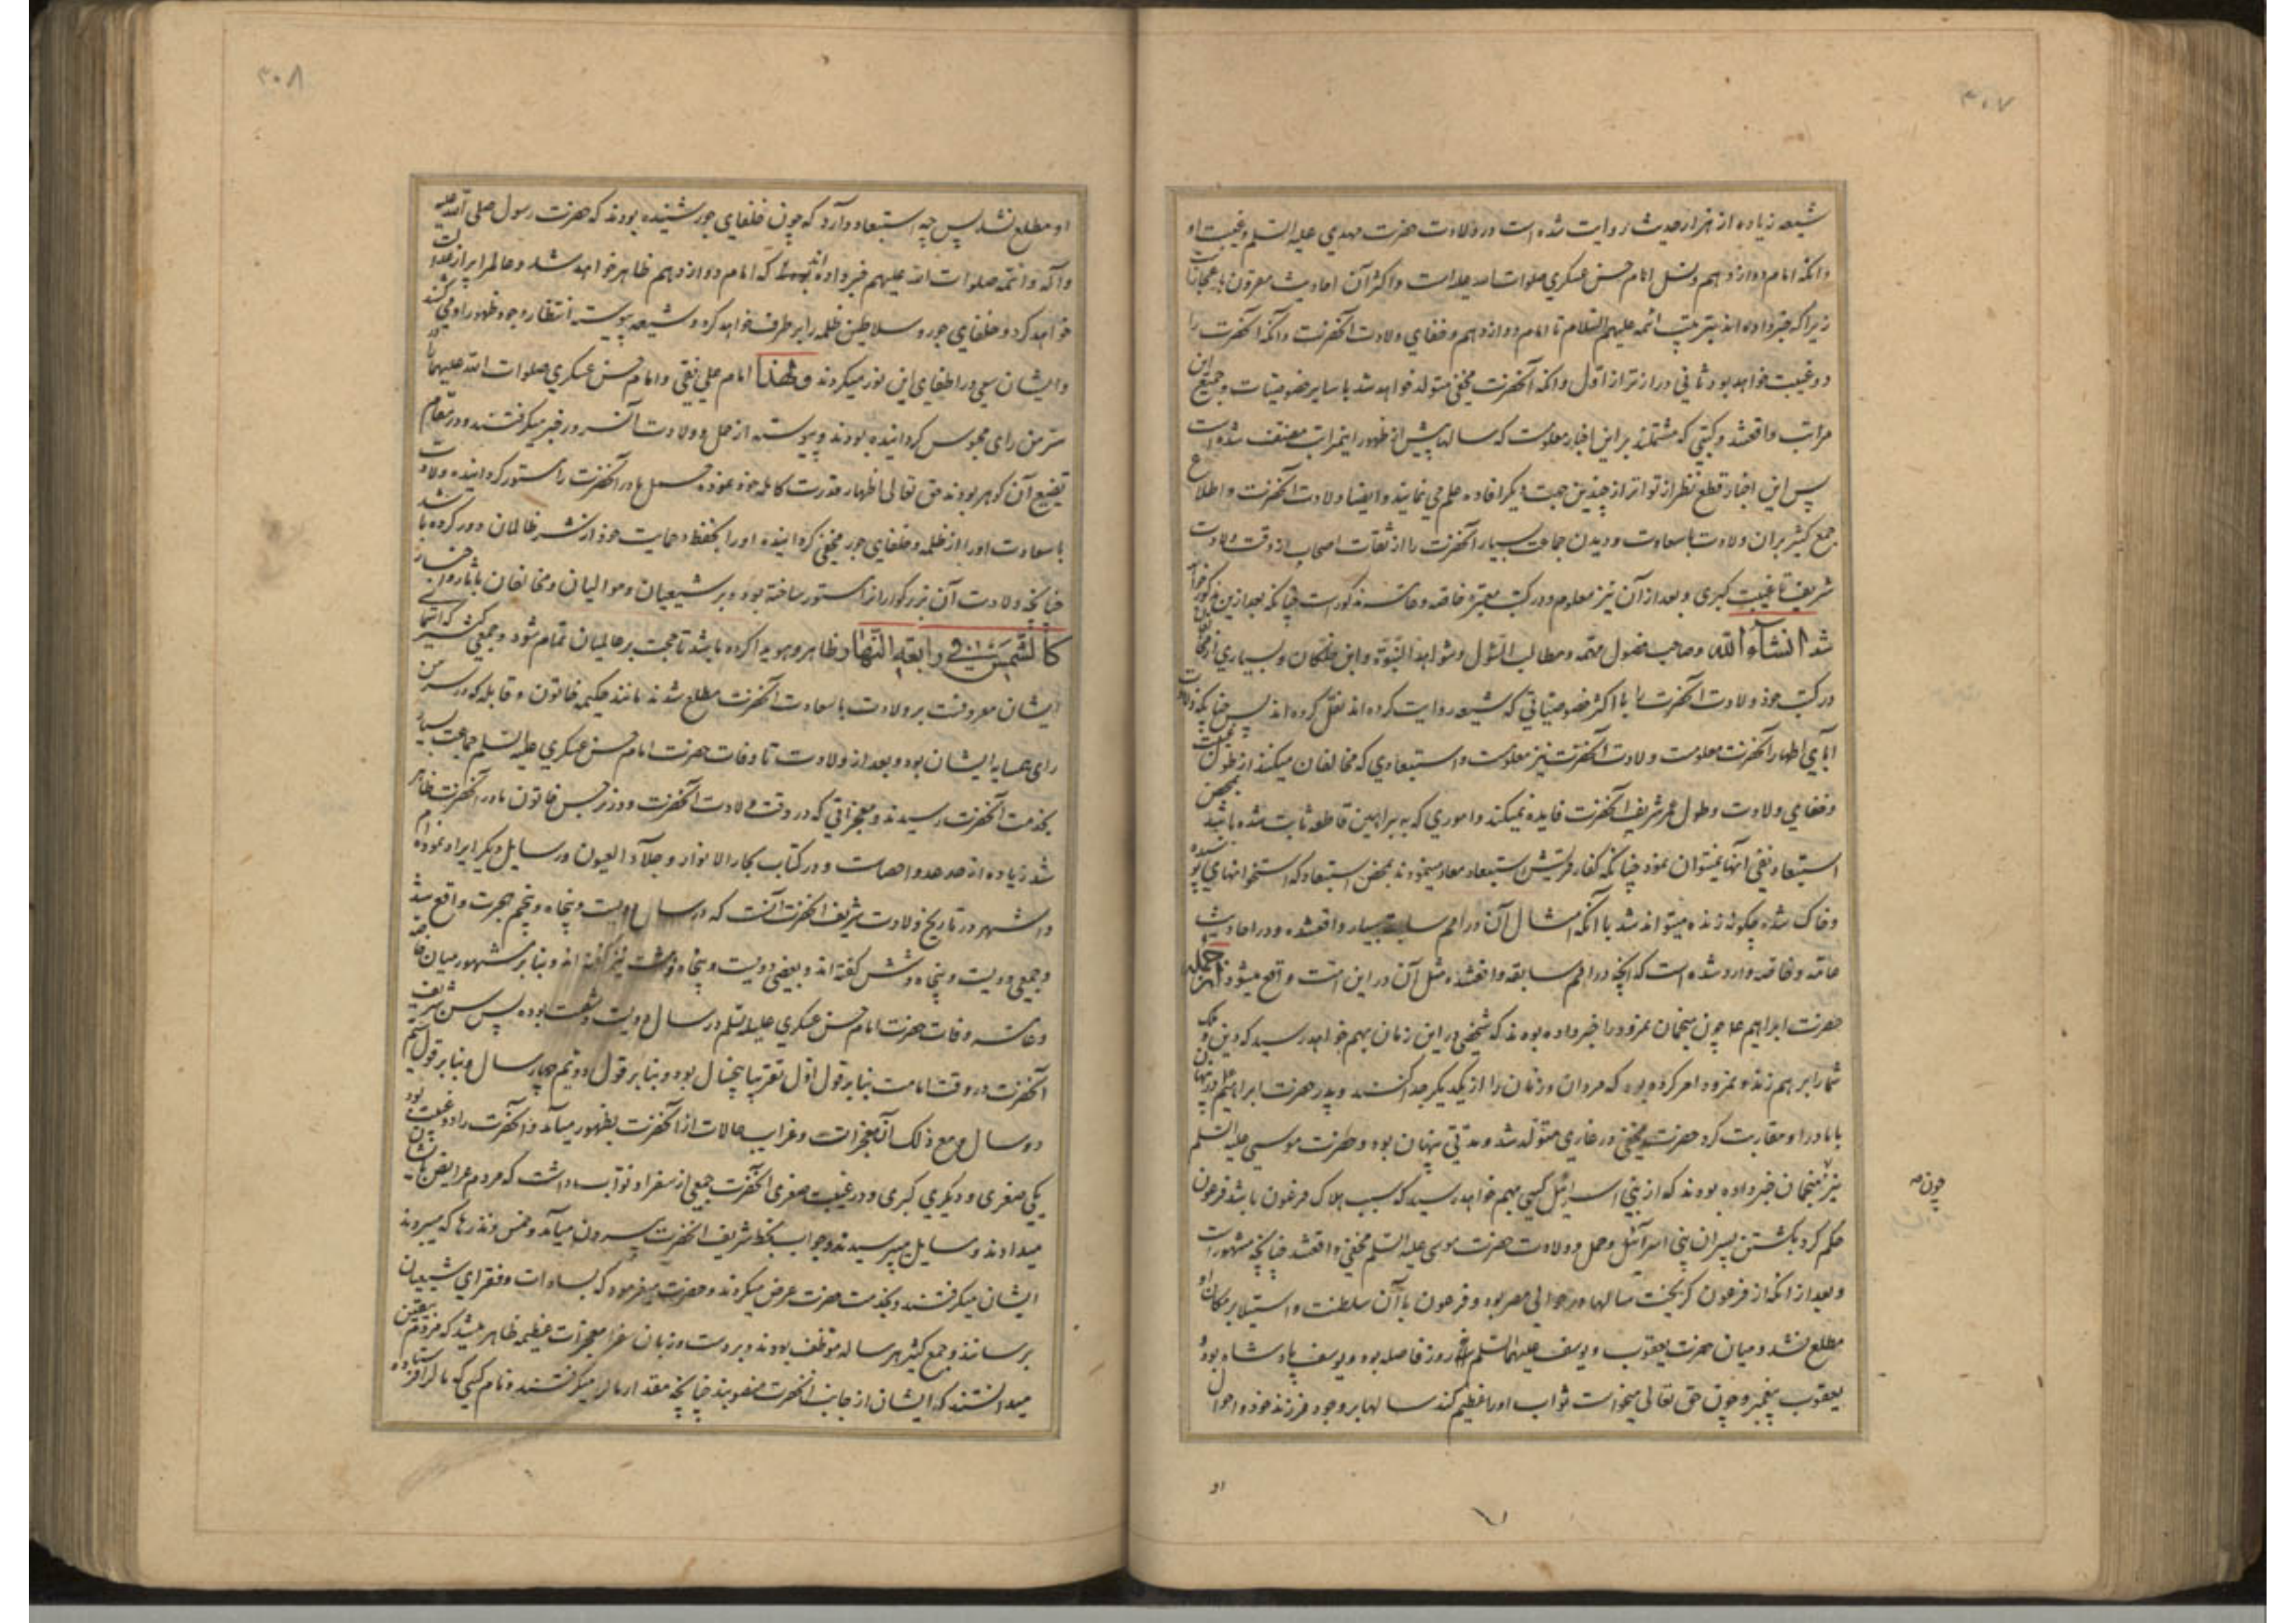 ۳۰۷
شیعه زیاده از هزار حدیث روایت شده است در ولادت حضرت مهدی علیه السلم و غیبت او
و انکه امام دوازدهم و نسل امام حسن عسکری صلوات الله علیه است و اکثر آن احادیث مقرون باعجاز است
زیرا که خبر داده اند بترتیب ائمه علیهم السلام تا امام دوازدهم و خفای ولادت آنحضرت و انکه آنحضرت را
دو غیبت خواهد بود ثانی دراز تر از اول و انکه آنحضرت مخفی متولد خواهد شد با سایر خصوصیات و جمیع این
مراتب واقعشد و کتبی که مشتملند بر این اخبار معلومست که سالها پیش از ظهور اینمراتب مصنف شده است
پس این اخبار قطع نظر از تواتر از چندین جهت دیگر افاده علم می نمایند و ایضا ولادت آنحضرت و اطلاع
جمع کثیر بران ولادت باسعادت و دیدن جماعت بسیار آنحضرت را از ثقات اصحاب از وقت ولادت
شریف تا غیبت کبری و بعد از آن نیز معلوم و در کتب معتبره خاصه و عامه مذکور است چنانکه بعد ازین مذکور خواهد
شد انشاء الله و صاحب فصول مهمه و مطالب السئول و شواهد النبوة و ابن خلکان و بسیاری از مخالفان
در کتب خود ولادت آنحضرت را با اکثر خصوصیاتی که شیعه روایت کرده اند نقل کرده اند پس چنانکه ولادت
آبای اطهار آنحضرت معلومست ولادت آنحضرت نیز معلومست و استبعادی که مخالفان میکنند از طول غیبت
و خفای ولادت و طول عمر شریف آنحضرت فایده نمیکند و اموری که به براهین قاطعه ثابت شده باشد بمحض
استبعاد نفی آنها نمیتوان نمود چنانکه کفار قریش استبعاد معاد مینمودند بمحض استبعاد که استخوانهای پوسیده
و خاک شده چگونه زنده میتواند شد با آنکه امثال آن در امم سابقه بسیار واقعشده و در احادیث
عامه و خاصه وارد شده است که آنچه در امم سابقه واقعشده مثل آن در این امت واقع میشود از انجمله
حضرت ابراهیم ع چون منجمان نمرود را خبر داده بودند که شخصی در این زمان بهم خواهد رسید که دین و ملک
شما را بر هم زند و نمرود امر کرده بود که مردان و زنان را از یکدیگر جدا کنند و پدر حضرت ابراهیم ع در پنهان
با مادر او مقاربت کرد حضرت مخفی در غاری متولد شد و مدتی پنهان بود و حضرت موسی علیه السلم
نیز منجمان خبر داده بودند که از بنی اسرائیل کسی بهم خواهد رسید که سبب هلاک فرعون باشد فرعون
چون صه
حکم کرد بکشتن پسران بنی اسرآئیل و حمل و ولادت حضرت موسی علیه السلم مخفی واقعشد چنانچه مشهور است
و بعد از انکه از فرعون گریخت سالها در حوالی مصر بود و فرعون با آن سلطنت و استیلا بر مکان او
مطلع نشد و میان حضرت یعقوب و یوسف علیهما السلم روز فاصله بود و یوسف پادشاه بود و
یعقوب پیغمبر و چون حق تعالی میخواست ثواب او را عظیم کند سالها بر وجود فرزند خود و احوال
او
۳۰۸
او مطلع نشد پس چه استبعاد دارد که چون خلفای جور شنیده بودند که حضرت رسول صلی الله علیه
و آله و ائمه صلوات الله علیهم خبر داده اند که امام دوازدهم ظاهر خواهد شد و عالم را پر از عدالت
خواهد کرد و خلفای جور و سلاطین ظلمه را بر طرف خواهد کرد و شیعه پیوسته انتظار وجود و ظهور او می کشند
و ایشان سعی در اطفای این نور میکردند و لهذا امام علی نقی و امام حسن عسکری صلوات الله علیهما را در
سر من رای محبوس گردانیده بودند و پیوسته از حمل و ولادت آن سرور خبر میگرفتند و در مقام
تضییع آن گوهر بودند حق تعالی اظهار قدرت کامله خود نموده حمل مادر آنحضرت را مستور گردانیده ولادت
با سعادت او را از ظلمه و خلفای جور مخفی گردانیده او را بحفظ و حمایت خود از شر ظالمان دور کرده باشد
چنانچه ولادت آن بزرگوار را مستور ساخته بود و بر شیعیان و موالیان و مخالفان بآثار و اخبار
کالشمس فی رابعة النهار ظاهر و هویدا کرده باشد تا حجت بر عالمیان تمام شود و جمعی کثیر که اسمای
ایشان معروفست بر ولادت با سعادت آنحضرت مطلع شدند مانند حکیمه خاتون و قابله که در سر من
رای همسایه ایشان بود و بعد از ولادت تا وفات حضرت امام حسن عسکری علیه السلم جماعت بسیار
بخدمت آنحضرت رسیدند و معجزاتی که در وقت ولادت آنحضرت و در نرجس خاتون مادر آنحضرت ظاهر
شد زیاده از حد عد و احصاست و در کتاب بحار الانوار و جلاء العیون و رسایل دیگر ایراد نموده ام
و اشهر در تاریخ ولادت شریف آنحضرت آنست که در سال دویست و پنجاه و پنجم هجرت واقع شد
و جمعی دویست و پنجاه و شش گفته اند و بعضی دویست و پنجاه و هشت نیز گفته اند و بنا بر مشهور میان خاصه
و عامه وفات حضرت امام حسن عسکری علیه السلم در سال دویست و شصت بوده پس سن شریف
آنحضرت در وقت امامت بنا بر قول اول تقریبا پنجسال بوده و بنا بر قول دویم چهار سال و بنا بر قول سیم
دو سال و مع ذلک آن معجزات و غرایب حالات از آنحضرت بظهور میآمد و آنحضرت را دو غیبت بود
یکی صغری و دیگری کبری و در غیبت صغری آنحضرت جمعی از سفرا و نواب داشت که مردم عرایض بایشان
میدادند و مسایل میپرسیدند و جواب بخط شریف آنحضرت بیرون میآمد و خمس و نذرها که میبردند
ایشان میگرفتند و بخدمت حضرت عرض میکردند و حضرت میفرمود که بسادات و فقرای شیعیان
برسانند و جمع کثیر هر ساله موظف بودند و بر دست و زبان سفرا معجزات عظیمه ظاهر میشد که مردم بیقین
میدانستند که ایشان از جانب آنحضرت منصوبند چنانچه مقدار مال را میگرفتند و نام کسی که مال را فرستاده